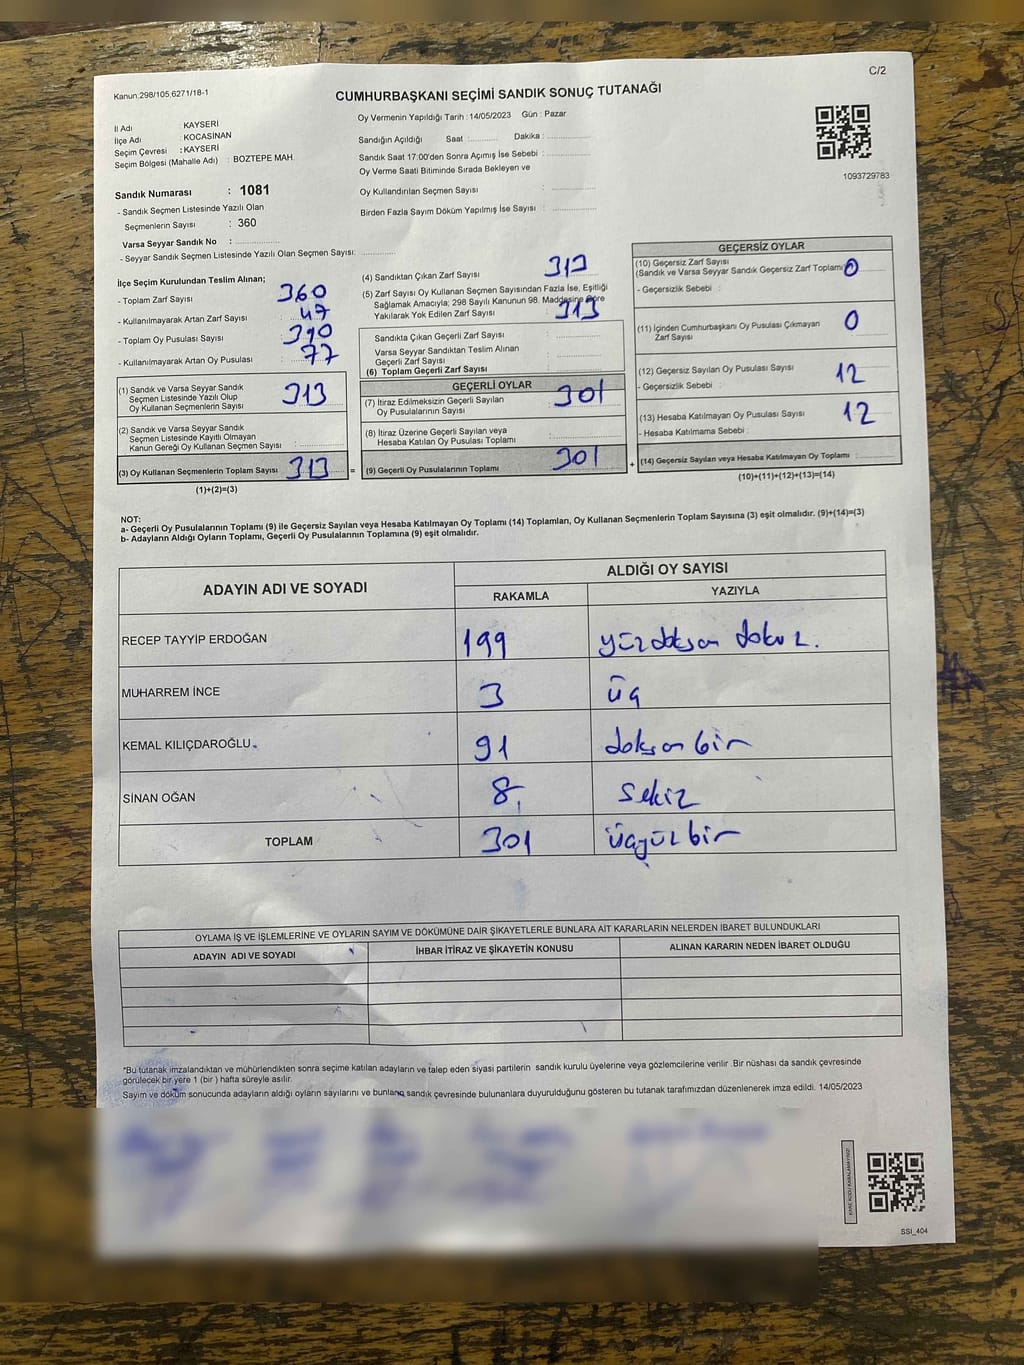 C/2
Kanun:298/105,6271/18-1
CUMHURBAŞKANI SEÇİMİ SANDIK SONUÇ TUTANAĞI
İl Adı : KAYSERİ
İlçe Adı : KOCASİNAN
Seçim Çevresi : KAYSERİ
Seçim Bölgesi (Mahalle Adı) : BOZTEPE MAH.
Sandık Numarası : 1081
- Sandık Seçmen Listesinde Yazılı Olan
Seçmenlerin Sayısı : 360
Varsa Seyyar Sandık No :
- Seyyar Sandık Seçmen Listesinde Yazılı Olan Seçmen Sayısı:
Oy Vermenin Yapıldığı Tarih : 14/05/2023 Gün : Pazar
Sandığın Açıldığı Saat : Dakika :
Sandık Saat 17:00'den Sonra Açımış İse Sebebi :
Oy Verme Saati Bitiminde Sırada Bekleyen ve
Oy Kullandırılan Seçmen Sayısı :
Birden Fazla Sayım Döküm Yapılmış İse Sayısı :
1093729783
İlçe Seçim Kurulundan Teslim Alınan;
- Toplam Zarf Sayısı : 360
- Kullanılmayarak Artan Zarf Sayısı : 47
- Toplam Oy Pusulası Sayısı : 390
- Kullanılmayarak Artan Oy Pusulası : 77
(1) Sandık ve Varsa Seyyar Sandık
Seçmen Listesinde Yazılı Olup
Oy Kullanan Seçmenlerin Sayısı : 313
(2) Sandık ve Varsa Seyyar Sandık
Seçmen Listesinde Kayıtlı Olmayan
Kanun Gereği Oy Kullanan Seçmen Sayısı :
(3) Oy Kullanan Seçmenlerin Toplam Sayısı : 313 =
(1)+(2)=(3)
(4) Sandıktan Çıkan Zarf Sayısı : 313
(5) Zarf Sayısı Oy Kullanan Seçmen Sayısından Fazla İse, Eşitliği
Sağlamak Amacıyla; 298 Sayılı Kanunun 98. Maddesine Göre
Yakılarak Yok Edilen Zarf Sayısı : 313
Sandıkta Çıkan Geçerli Zarf Sayısı :
Varsa Seyyar Sandıktan Teslim Alınan
Geçerli Zarf Sayısı :
(6) Toplam Geçerli Zarf Sayısı :
GEÇERLİ OYLAR
(7) İtiraz Edilmeksizin Geçerli Sayılan
Oy Pusulalarının Sayısı : 301
(8) İtiraz Üzerine Geçerli Sayılan veya
Hesaba Katılan Oy Pusulası Toplamı :
(9) Geçerli Oy Pusulalarının Toplamı : 301 +
GEÇERSİZ OYLAR
(10) Geçersiz Zarf Sayısı
(Sandık ve Varsa Seyyar Sandık Geçersiz Zarf Toplamı) 0
- Geçersizlik Sebebi :
(11) İçinden Cumhurbaşkanı Oy Pusulası Çıkmayan
Zarf Sayısı : 0
(12) Geçersiz Sayılan Oy Pusulası Sayısı : 12
- Geçersizlik Sebebi :
(13) Hesaba Katılmayan Oy Pusulası Sayısı : 12
- Hesaba Katılmama Sebebi :
(14) Geçersiz Sayılan veya Hesaba Katılmayan Oy Toplamı :
(10)+(11)+(12)+(13)=(14)
NOT:
a- Geçerli Oy Pusulalarının Toplamı (9) ile Geçersiz Sayılan veya Hesaba Katılmayan Oy Toplamı (14) Toplamları, Oy Kullanan Seçmenlerin Toplam Sayısına (3) eşit olmalıdır. (9)+(14)=(3)
b- Adayların Aldığı Oyların Toplamı, Geçerli Oy Pusulalarının Toplamına (9) eşit olmalıdır.
ADAYIN ADI VE SOYADI ALDIĞI OY SAYISI
RAKAMLA YAZIYLA
RECEP TAYYİP ERDOĞAN 199 yüzdoksan dokuz.
MUHARREM İNCE 3 üç
KEMAL KILIÇDAROĞLU 91 doksan bir
SİNAN OĞAN 8 sekiz
TOPLAM 301 üçyüz bir
OYLAMA İŞ VE İŞLEMLERİNE VE OYLARIN SAYIM VE DÖKÜMÜNE DAİR ŞİKAYETLERLE BUNLARA AİT KARARLARIN NELERDEN İBARET BULUNDUKLARI
ADAYIN ADI VE SOYADI İHBAR İTİRAZ VE ŞİKAYETİN KONUSU ALINAN KARARIN NEDEN İBARET OLDUĞU
*Bu tutanak imzalandıktan ve mühürlendikten sonra seçime katılan adayların ve talep eden siyasi partilerin sandık kurulu üyelerine veya gözlemcilerine verilir .Bir nüshası da sandık çevresinde
görülecek bir yere 1 (bir ) hafta süreyle asılır.
Sayım ve döküm sonucunda adayların aldığı oyların sayılarını ve bunların sandık çevresinde bulunanlara duyurulduğunu gösteren bu tutanak tarafımızdan düzenlenerek imza edildi. 14/05/2023
SSİ_404